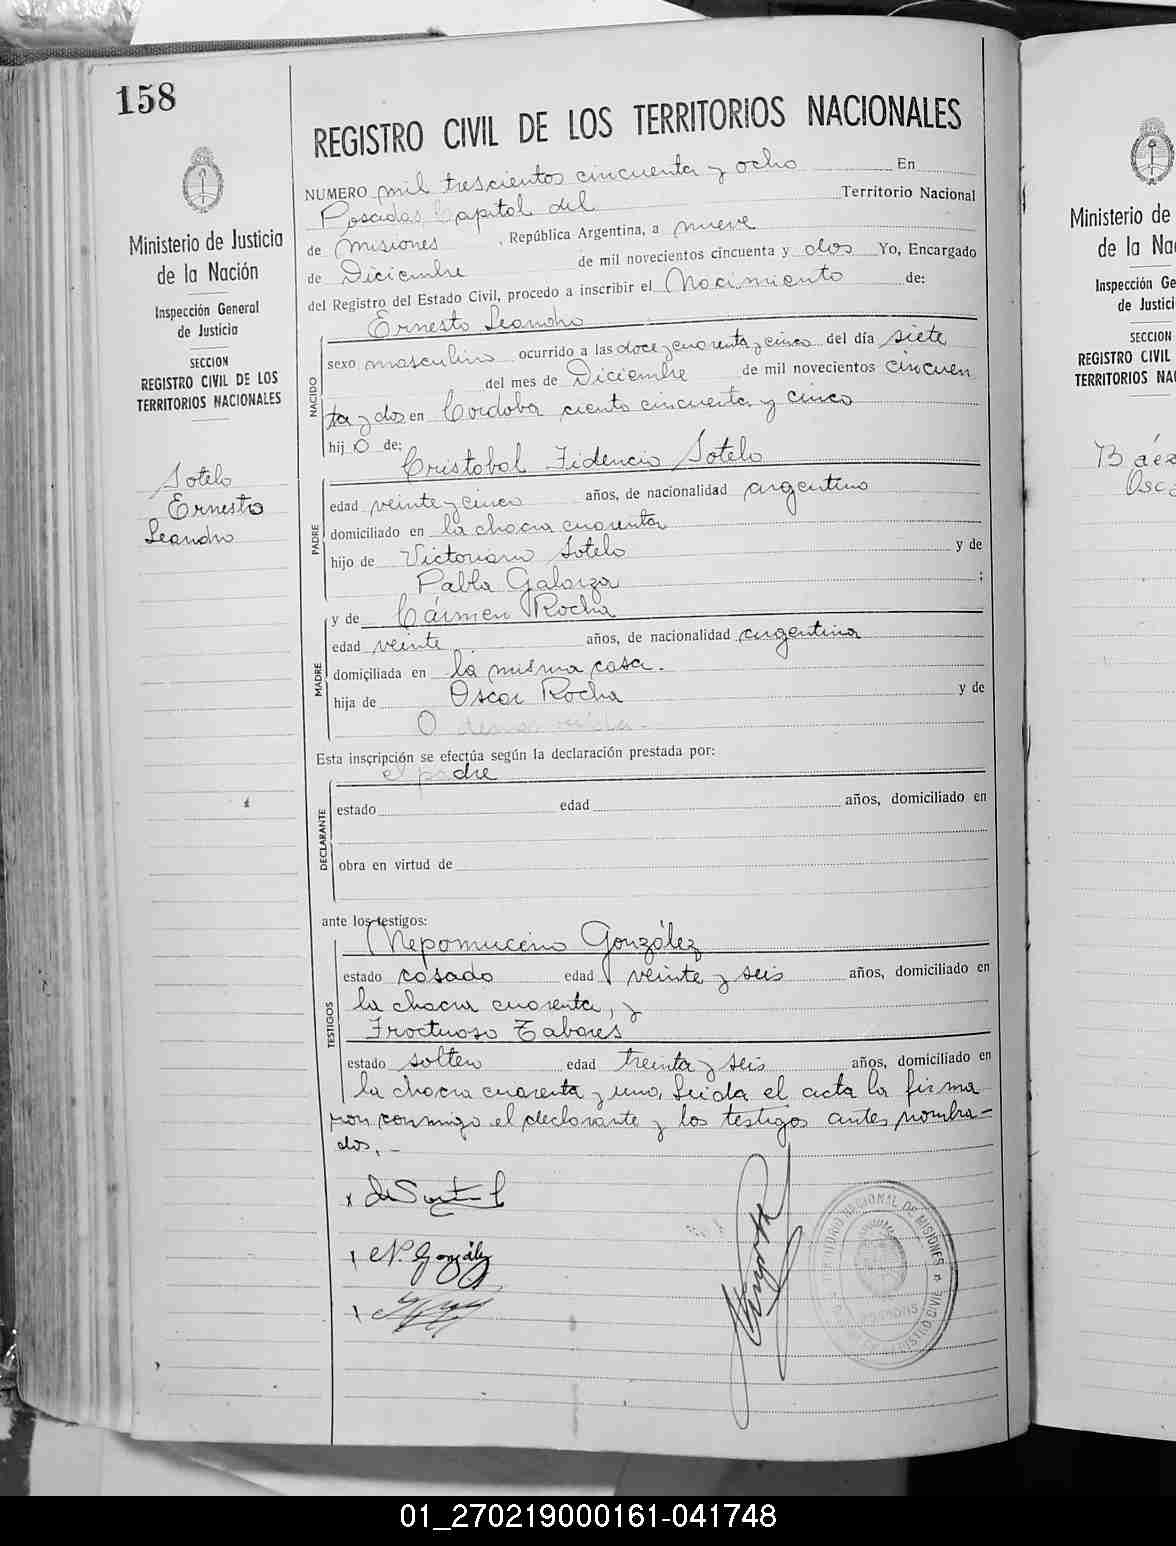 158
Ministerio de Justicia
de la Nación
Inspección General
de Justicia
SECCION
REGISTRO CIVIL DE LOS
TERRITORIOS NACIONALES
Sotelo
Ernesto
Leandro
REGISTRO CIVIL DE LOS TERRITORIOS NACIONALES
NUMERO mil trescientos cincuenta y ocho En
Posadas Capital del Territorio Nacional
de Misiones, República Argentina, a nueve
de Diciembre de mil novecientos cincuenta y dos Yo, Encargado
del Registro del Estado Civil, procedo a inscribir el Nacimiento de:
Ernesto Leandro
NACIDO
sexo masculino ocurrido a las doce y cuarenta y cinco del día siete
del mes de Diciembre de mil novecientos cincuen
ta y dos en Cordoba ciento cincuenta y cinco
hijo de:
Cristobal Fidencio Sotelo
PADRE
edad veinte y cinco años, de nacionalidad argentino
domiciliado en la chacra cuarenta
hijo de Victoriano Sotelo y de
Pabla Galarza ;
y de Cármen Rocha
MADRE
edad veinte años, de nacionalidad argentina
domiciliada en la misma casa.
hija de Oscar Rocha y de
Esta inscripción se efectúa según la declaración prestada por:
el padre
DECLARANTE
estado edad años, domiciliado en
obra en virtud de
ante los testigos:
Nepomuceno González
TESTIGOS
estado casado edad veinte y seis años, domiciliado en
la chacra cuarenta, y
Fructuoso Tabares
estado soltero edad treinta y seis años, domiciliado en
la chacra cuarenta y uno, Leida el acta la firma
ron conmigo el declarante y los testigos antes nombra-
dos.-
N. González
TERRITORIO NACIONAL DE MISIONES
REGISTRO CIVIL
POSADAS
Ministerio de
de la Na
Inspección Ge
de Justici
SECCION
REGISTRO CIVIL
TERRITORIOS NA
Báez
Osc
01_270219000161-041748